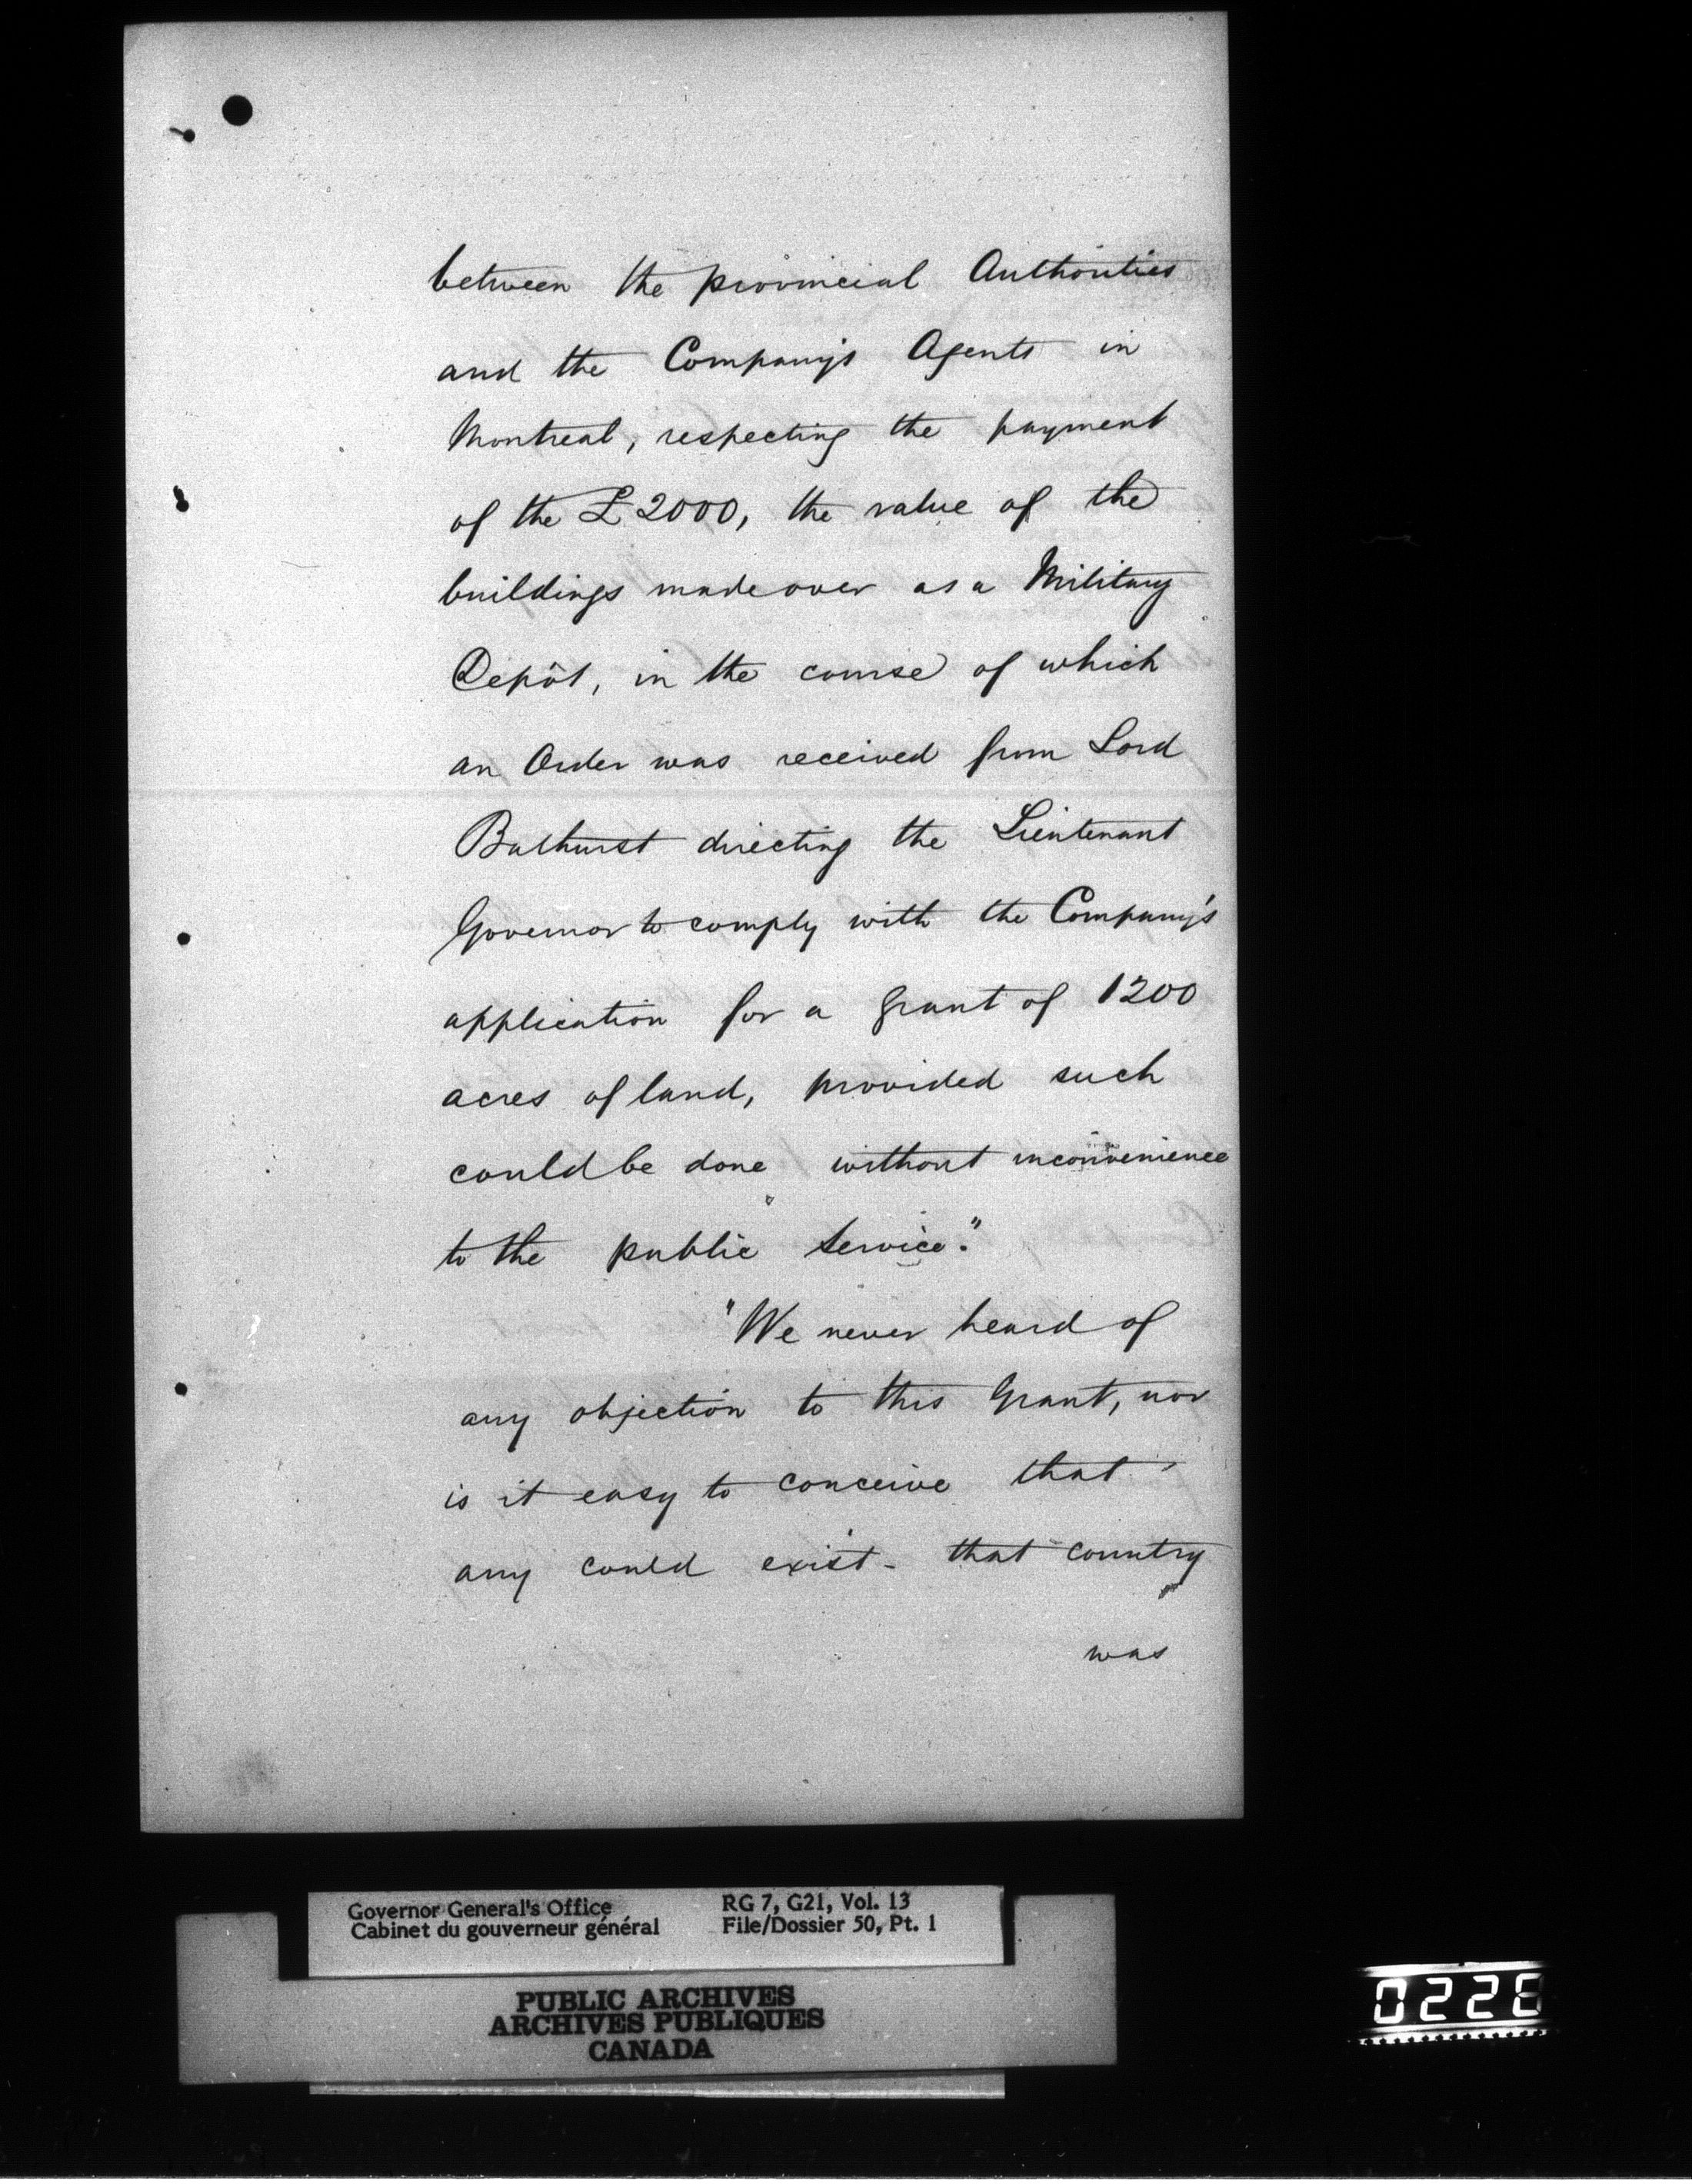 between the provincial Authorities
and the Company's Agents in
Montreal, respecting the payment
of the £2000, the value of the
buildings made over as a Military
Depôt, in the course of which
an Order was received from Lord
Bathurst directing the Lieutenant
Governor to comply with the Company's
application for a grant of 1200
acres of land, provided such
could be done without inconvenience
to the public service."
"We never heard of
any objection to this Grant, nor
is it easy to conceive that
any could exist - that country
was
Governor General's Office
Cabinet du gouverneur général
RG 7, G21, Vol. 13
File/Dossier 50, Pt. 1
PUBLIC ARCHIVES
ARCHIVES PUBLIQUES
CANADA